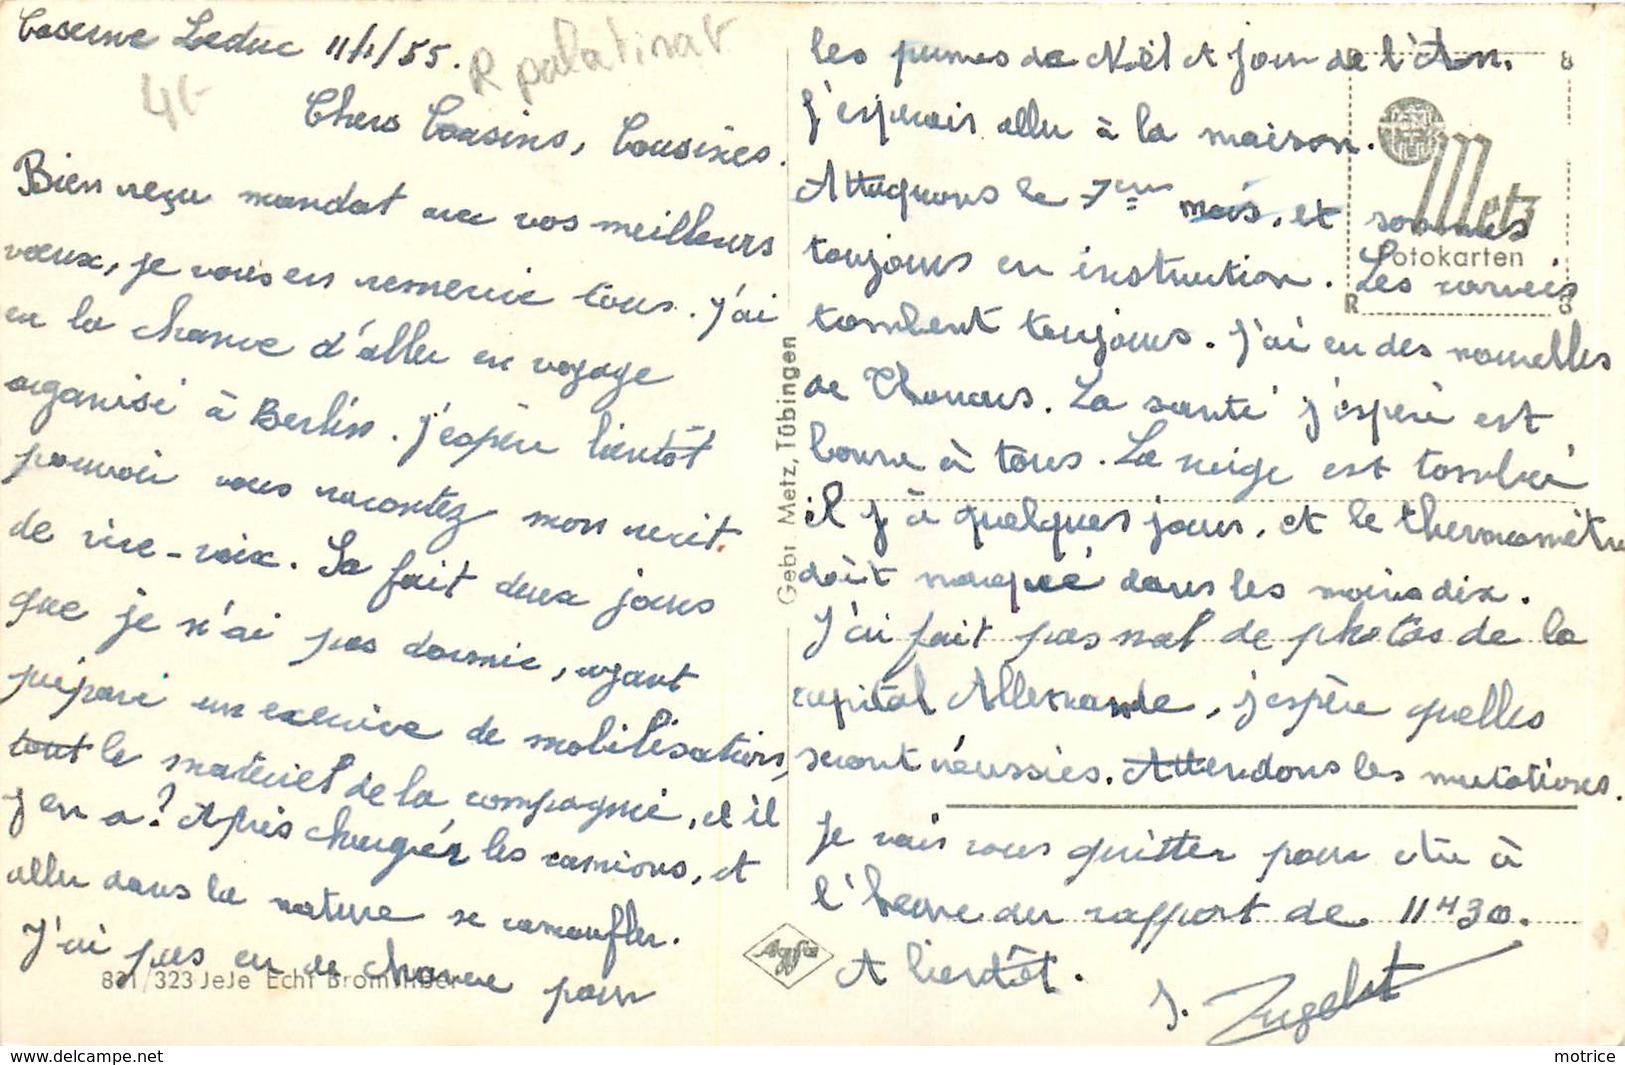 Caserne Leduc 11/1/55.
R palatinat
4€
Chers Cousins, Cousines.
Bien reçu mandat avec vos meilleurs
vœux, je vous en remercie tous. J'ai
eu la chance d'aller en voyage
organisé à Berlin. J'espère bientôt
pouvoir vous racontez mon recit
de vive-voix. Sa fait deux jours
que je n'ai pas dormie, ayant
préparé un exercice de mobilisation,
tout le matériel de la compagnie, et il
y en a? Après chargér les camions, et
aller dans la nature se camoufler.
J'ai pas eu de chance pour
les perms de Noël et jour de l'An.
J'esperais aller à la maison.
Attaquons le 7em mois, et sommes
toujours en instruction. Les
tombent toujours. J'ai eu des nouvelles
de Thouars. La santé j'espère est
bonne à tous. La neige est tombée
il y a quelques jours, et le thermomètre
doit marqué dans les moins dix.
J'ai fait pas mal de photos de la
capital Allemande, j'espère quelles
seront réussies. Attendons les mutations.
Je vais vous quitter pour être à
l'heure au rapport de 11H30.
A bientôt.
J.
Metz
Fotokarten
R
Gebr. Metz, Tübingen
Agfa
831/323 JeJe Echt Bromsilber
www.delcampe.net
motrice